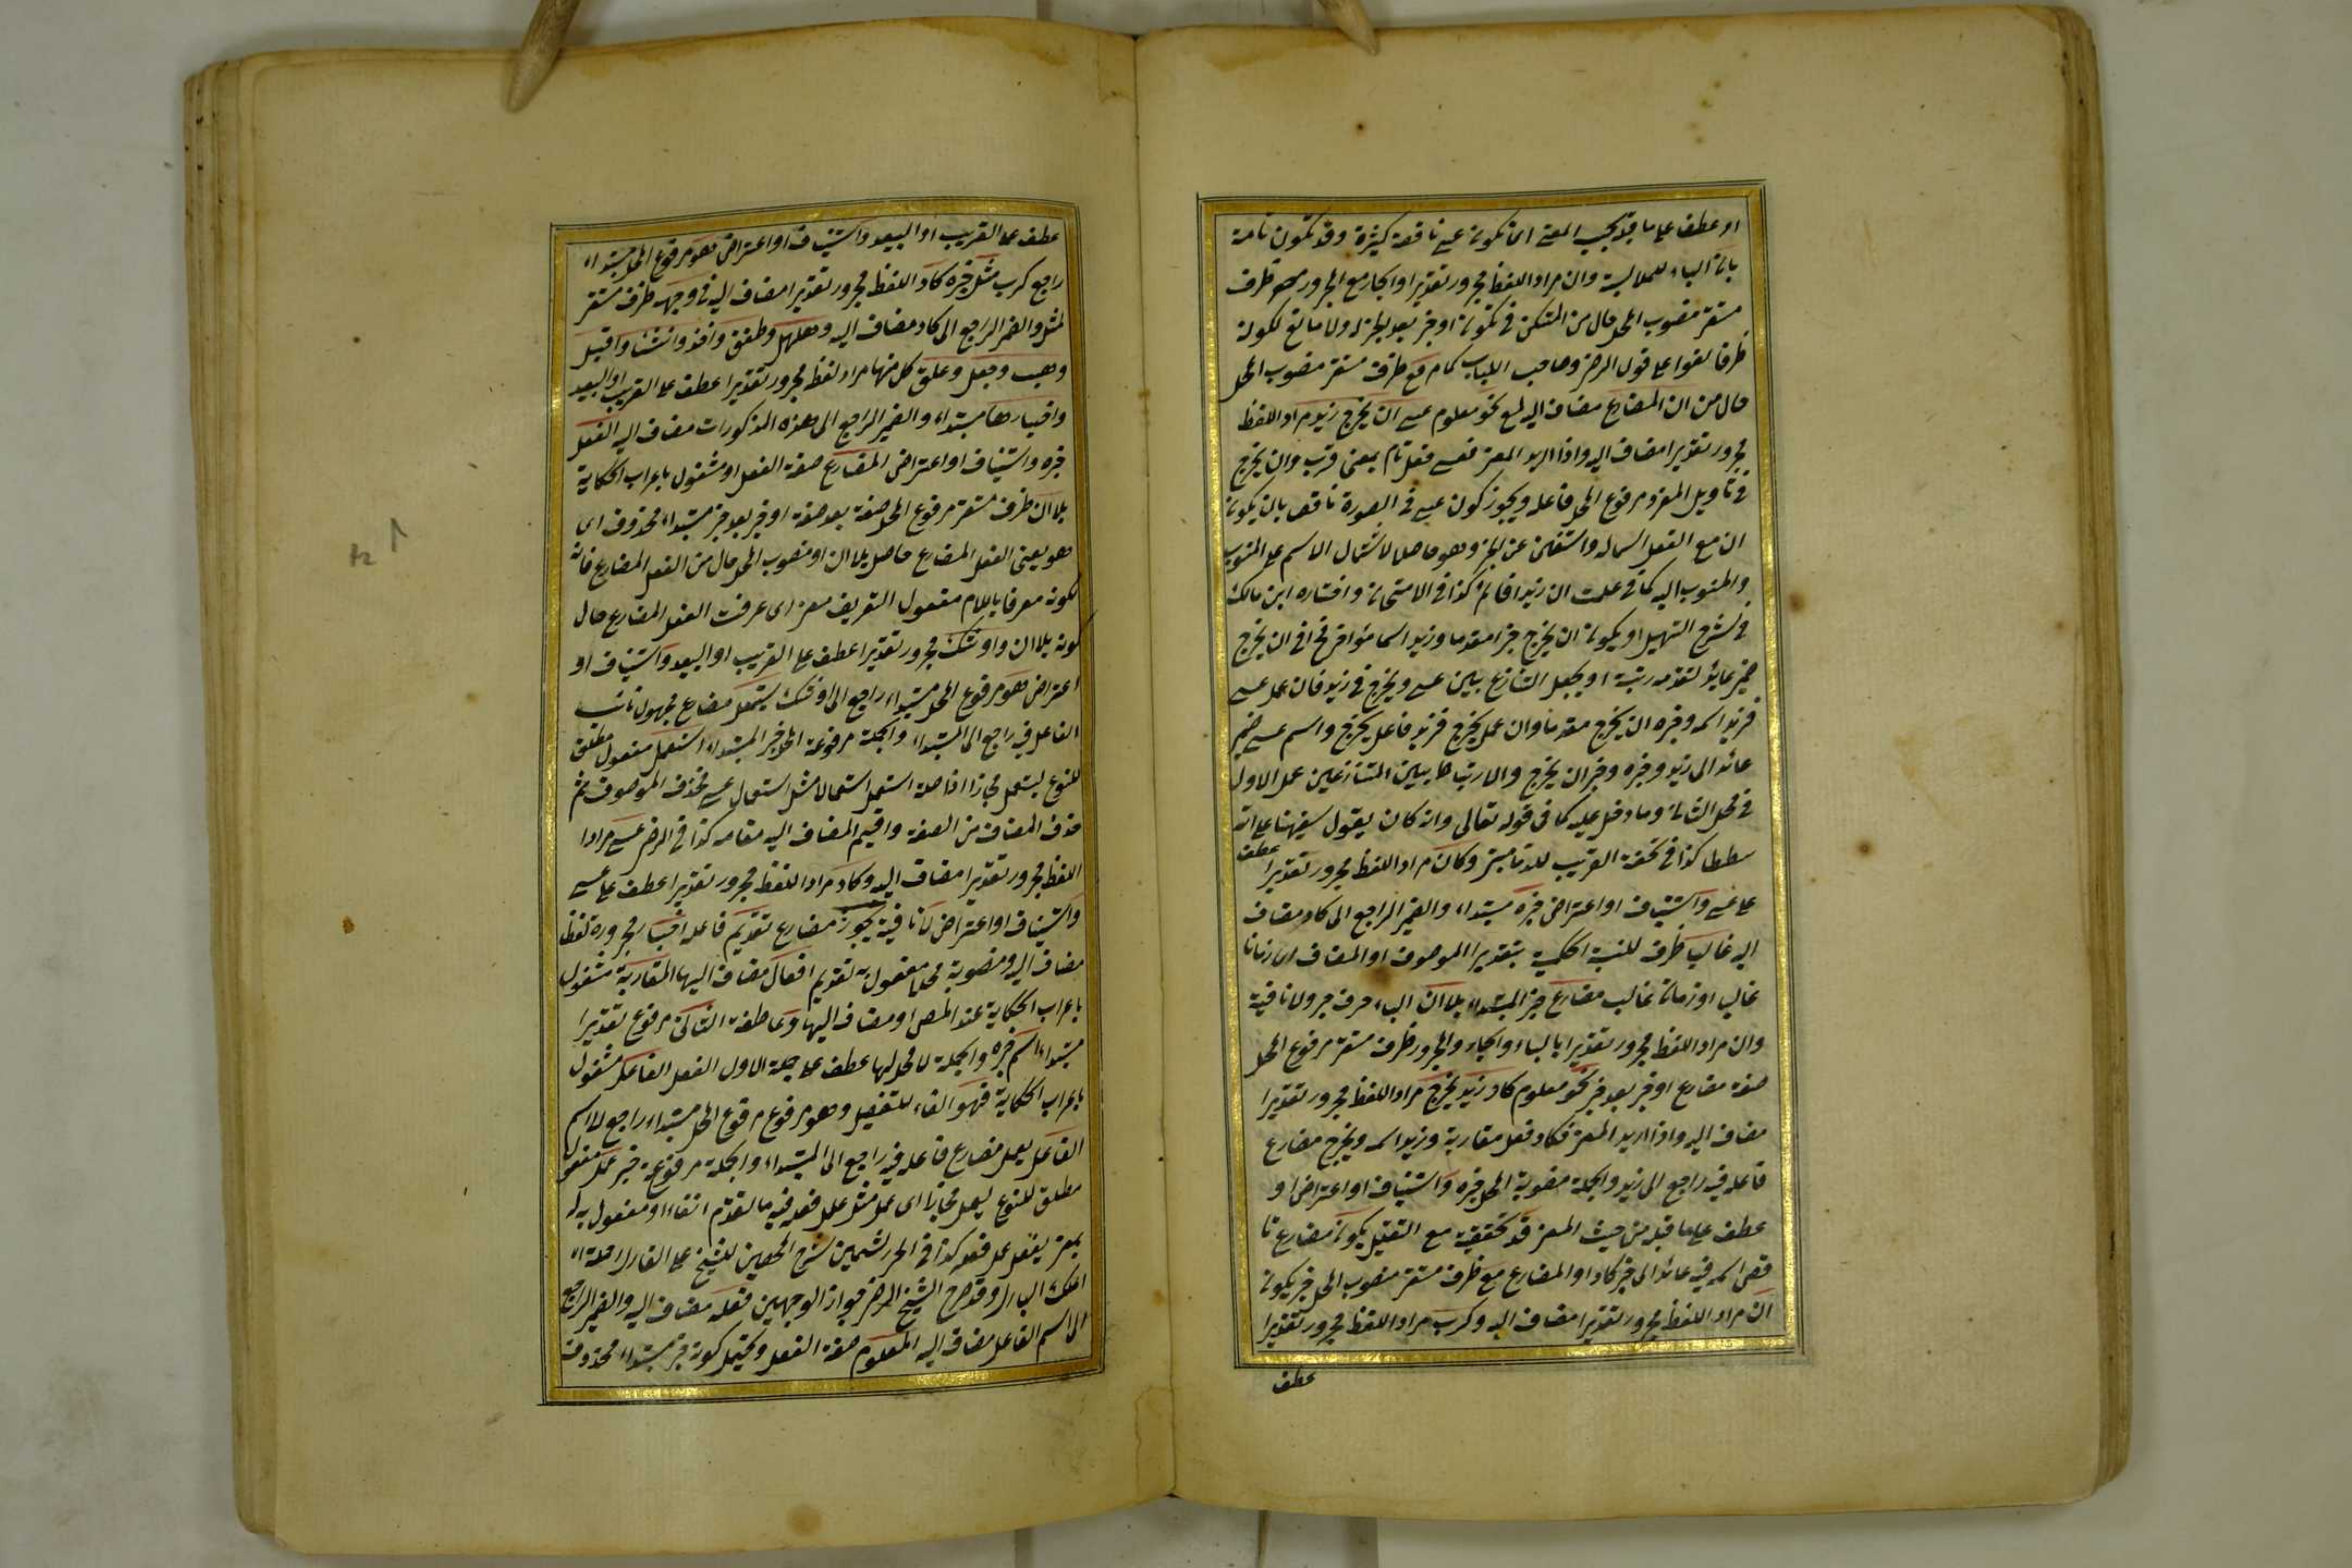 او عطف على ما قبله بحسب المعنى اى تكون عسى ناقصة كثيرة وقد تكون تامة
بان الباء للملابسة وان مراد اللفظ مجرور تقديرا او الجار مع المجرور ظرف
مستقر منصوب المحل حال من المستكن فى تكون او خبر بعد الخبر له ولا مانع لكونه
ظرفا لغوا على قول الرضى وصاحب اللباب كما مر مع ظرف مستقر منصوب المحل
حال من ان المضارع مضاف اليه لمع نحو معلوم عسى ان يخرج زيد مراد اللفظ
مجرور تقديرا مضاف اليه واذا اريد المعنى فعسى فعل تام بمعنى قرب وان يخرج
فى تأويل المفرد مرفوع المحل فاعله ويجوز كون عسى فى الصورة ناقصه بان يكون
ان مع الفعل اسما له واستغنى عن الخبر وهو حاصل لاشتمال الاسم على المنسوب
والمنسوب اليه كما فى علمت ان زيدا قائم كذا فى الامتحان واختاره ابن مالك
فى شرح التسهيل او يكون ان يخرج خبرا مقدما وزيد اسما مؤخرا فى ان يخرج
ضمير عائد لتقدمه رتبة او يجعل التنازع بين عسى ويخرج فى زيد فان عمل عسى
فزيد اسمه وخبره ان يخرج مقدما وان عمل يخرج فزيد فاعل يخرج واسم عسى ضمير
عائد الى زيد وخبره ان يخرج والارتباط بين المتنازعين عمل الاول
فى محل الثانى وما دخل عليه كما فى قوله تعالى وانه كان يقول سفيهنا على الله
شططا كذا فى تحفة الغريب للدمامينى وكان مراد اللفظ مجرور تقديرا عطف
على عسى واستيناف او اعتراض خبره مبتداء والضمير الراجع الى كاد مضاف
اليه غالبا ظرف للنسبة الحكمية بتقدير الموصوف او المضاف اى زمانا
غالبا او زمان غالب مضارع خبر المبتداء بلا ان الباء حرف جر ولا نافية
وان مراد اللفظ مجرور تقديرا بالباء والجار والمجرور ظرف مستقر مرفوع المحل
صفة مضارع او خبر بعد خبر نحو معلوم كاد زيد يخرج مراد اللفظ مجرور تقديرا
مضاف اليه واذا اريد المعنى فكاد فعل مقاربة وزيد اسمه ويخرج مضارع
فاعله فيه راجع الى زيد والجملة منصوبة المحل خبره واستيناف او اعتراض او
عطف على ما قبله من حيث المعنى قد تحقيقية مع التقليل يكون مضارع نا
قص اسمه فيه عائد الى خبر كاد او المضارع مع ظرف مستقر منصوب المحل خبر يكون
ان مراد اللفظ مجرور تقديرا مضاف اليه وكرب مراد اللفظ مجرور تقديرا
عطف
عطف على القريب او البعيد واستيناف او اعتراض وهو مرفوع المحل مبتداء
راجع كرب مثل خبره كاد اللفظ مجرور تقديرا مضاف اليه فى وجهه ظرف مستقر
لمثل والضمير الراجع الى كاد مضاف اليه وهلهل وطفق واخذ وانشاء واقبل
وهب وجعل وعلق كل منها مراد لفظه مجرور تقديرا عطف على القريب او البعيد
واخبارها مبتداء والضمير الراجع الى هذه المذكورات مضاف اليه الفعل
خبره واستيناف او اعتراض المضارع صفة الفعل او مشغول باعراب الحكاية
بلا ان ظرف مستقر مرفوع المحل صفة بعد صفة او خبر بعد خبر مبتداء محذوف اى
هو يعنى الفعل المضارع حاصل بلا ان او منصوب المحل حال من الفعل المضارع فانه
لكونه معرفا باللام مفعول التعريف معنى اى عرفت الفعل المضارع حال
كونه بلا ان واوشك مجرور تقديرا عطف على القريب او البعيد واستيناف او
اعتراض وهو مرفوع المحل مبتداء راجع الى اوشك يستعمل مضارع مجهول نائب
الفاعل فيه راجع الى المبتداء والجملة مرفوعة المحل خبر المبتداء استعمال مفعول مطلق
للنوع ليستعمل مجازا اذ اصله استعمل استعمالا مثل استعمال عسى فحذف الموصوف ثم
حذف المضاف من الصفة واقيم المضاف اليه مقامه كذا فى الرضى عسى مراد
اللفظ مجرور تقديرا مضاف اليه وكاد مراد اللفظ مجرور تقديرا عطف على عسى
واستيناف او اعتراض لا نافية يجوز مضارع تقديم فاعله اخبار مجرورة لفظا
مضاف اليه ومنصوبة محلا مفعول به لتقديم افعال مضاف اليها المقاربة مشغول
باعراب الحكاية عند المص او مضاف اليها وعاطفة الثانى مرفوع تقديرا
مبتداء اسم خبره والجملة لا محل لها عطف على جملة الاول الفعل الفاعل مشغول
باعراب الحكاية فهو الفاء للتفصيل وهو مرفوع المحل مبتداء راجع الى اسم
الفاعل يعمل مضارع فاعله فيه راجع الى المبتداء والجملة مرفوعة خبر عمل مفعول
مطلق للنوع ليعمل مجازا اى عملا مثل عمل فعله فيه ما تقدم انفا او مفعول به له
بمعنى يفعل عمل فعله كذا فى الحرز الثمين شرح الحصين للشيخ على القارى رحمة الله
الملك البارى وقد صرح الشيخ الرضى بجواز الوجهين فعله مضاف اليه والضمير الراجع
الى اسم الفاعل مضاف اليه المعلوم صفة الفعل ويحتمل كونه خبر مبتداء محذوف